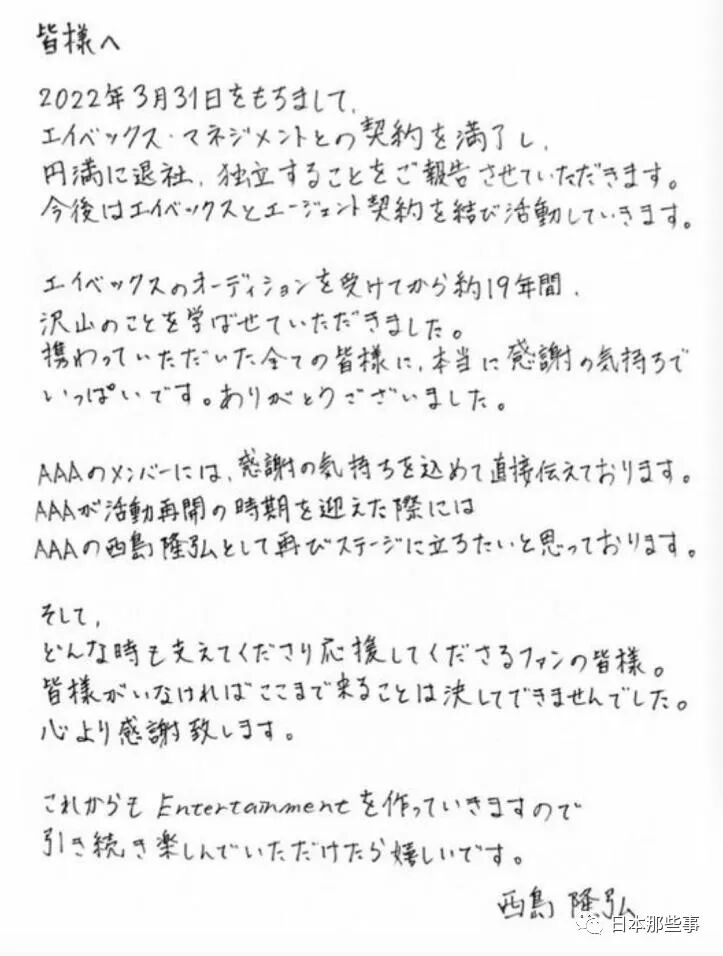 皆様へ
2022年3月31日をもちまして、
エイベックス・マネジメントとの契約を満了し、
円満に退社、独立することをご報告させていただきます。
今後はエイベックスとエージェント契約を結び活動していきます。
エイベックスのオーディションを受けてから約19年間、
沢山のことを学ばせていただきました。
携わっていただいた全ての皆様に、本当に感謝の気持ちで
いっぱいです。ありがとうございました。
AAAのメンバーには、感謝の気持ちを込めて直接伝えております。
AAAが活動再開の時期を迎えた際には
AAAの西島隆弘として再びステージに立ちたいと思っております。
そして、
どんな時も支えてくださり応援してくださるファンの皆様。
皆様がいなければここまで来ることは決してできませんでした。
心より感謝致します。
これからもEntertainmentを作っていきますので
引き続き楽しんでいただけたら嬉しいです。
西島 隆弘
日本那些事